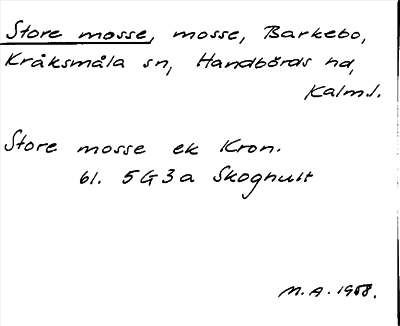 Store mosse, mosse, Barkebo,
Kråksmåla sn, Handbörds hd,
Kalm.l.
Store mosse ek Kron.
bl. 5G3a Skoghult
M.A. 1958.